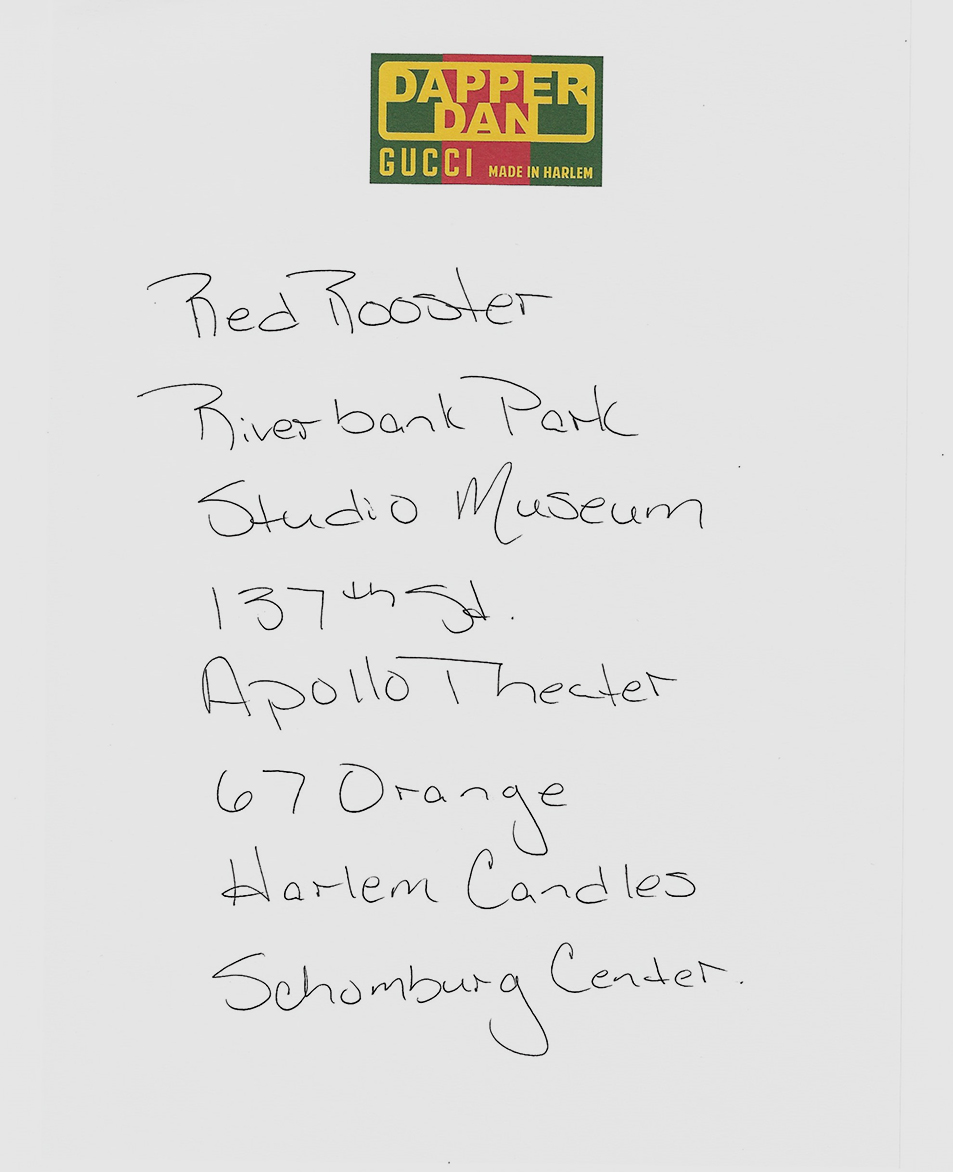 DAPPER
DAN
GUCCI MADE IN HARLEM
Red Rooster
Riverbank Park
Studio Museum
137th St.
Apollo Theater
67 Orange
Harlem Candles
Schomburg Center.